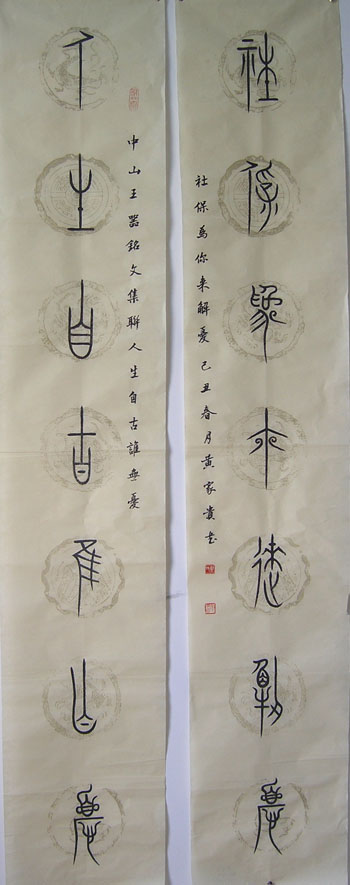 人生自古誰無憂
中山王器銘文集聯人生自古誰無憂
社保為你來解憂
社保為你來解憂己丑春月黃家貴書